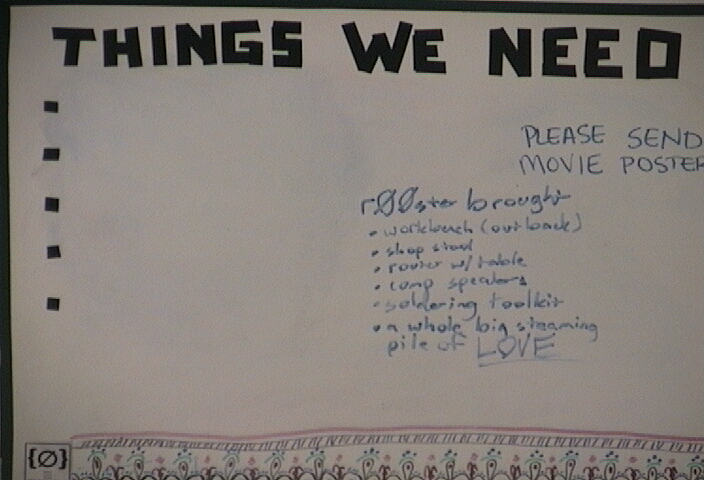 THINGS WE NEED
PLEASE SEND
MOVIE POSTER
rØØster brought
• workbench (out back)
• shop stool
• router w/ table
• comp speakers
• soldering toolkit
• a whole big steaming
pile of LOVE
{Ø}